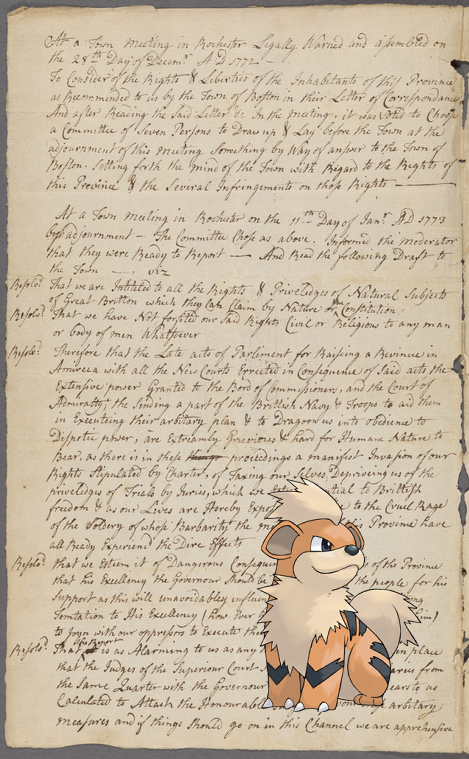 At a Town meeting in Rochester Legally Warned and assembled on
the 28th Day of Decemr AD 1772 —
To Consider of the Rights & Liberties of the Inhabitants of this Province
as Recommended to us by the Town of Boston in their Letter of Correspondance
And after Reading the Said Letter &c In the meeting, it was Voted to Choose
a Committee of Seven Persons to Draw up & Lay before the Town at the
adjournment of this meeting Something by Way of answer to the Town of
Boston. Setting forth the mind of the Town with Regard to the Rights of
this Province & the Several Infringements on those Rights —
At a Town meeting in Rochester on the 11th Day of Janr AD 1773
by adjournment — The Committee Chose as above. Informed the moderator
that they were Ready to Report — And Read the following Draft to
the Town — viz
Resolvd That we are Intitled to all the Rights & Priveledges of Natural Subjects
of Great Britton which they Can Claim by Nature or the Constitution
Resolvd That we have Not forfited our Said Rights Civil or Religious to any man
or body of men Whatsoever
Resolvd Therefore that the Late acts of Parliment for Raising a Revinue in
America with all the New Courts Errected in Consequence of Said acts the
Extensive power Granted to the Bord of Commissioners, and the Court of
Admiralty, the Sending a part of the Brittish Navy & Troops to aid them
in Executing their arbitary plan & to Dragoon us into obedience to
Dispotic power, are Extreamly Grievious & hard for Humane Nature to
Bear, as there is in these proceedings a manifest Invasion of our
Rights Stipulated by Charter, of Taxing our Selves, Depriveing us of the
priviledges of Trials by Juries, which we tial to Brittish
freedom & as our Lives are Hereby Expos to the Cruel Rage
of the Soldery of whose Barbarity the his Province have
all Ready Experiencd the Dire Effects
Resolvd that we Esteem it of Dangerous Consequen of the Province
that his Excellency the Governour Should be the people for his
Support as this will unavoidably influen
Temtation to His Excellency (how Ever him)
to Joyn with our oppressors to Execute the
Resolvd the Report is as Alarming to us as any en place
that the Judges of the Superiour Court from
the Same Quarter with the Governour ear to us
Calculated to Attach the Honourabl arbitary
measures and if things Should go on in this Channel we are apprehensive